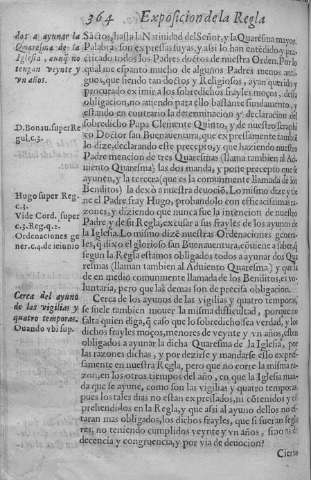 364 Exposicion de la Regla
dos a ayunar la
Quaresma de la
Iglesia, aunq̃ no
tengan veynte y
vn años.
D.Bonau.super Re
gul.c.3.
Hugo super Reg.
c.3.
Vide Cord. super
c.3.Reg.q.2.
Ordenaciones ge
ner.c.4.de ieiunio
Cerca del ayuno
de las vigilias y
quatro temporas.
Quando vbi sup.
Sãctos, hasta la Natiuidad del Señor, y la Quaresma mayor.
Palabras son expressas suyas, y assi lo han entẽdido y
cticado todos los Padres doctos de nuestra Orden. Por lo
qual me espanto mucho de algunos Padres
gue, que siendo tan doctos y Religiosos, ayan querido y
procurado eximir a los sobredichos frayles moços, desta
obligacion, no auiendo para ello bastante fundamento,
estando en contrario la determinacion y declaracion del
sobredicho Papa Clemente Quinto, y de nuestro
co Doctor san Buenauentura, que expressamente tambiẽ
lo dize, declarando este precepto, y que haziendo nuestro
Padre mencion de tres Quaresmas (llama tambien al Ad-
uiento Quaresma) las dos manda, y pone precepto que se
ayunen, y la tercera (que es la comunmente llamada de los
Benditos) la dexò a nuestra deuociõ. Lo mismo dize y tie
ne el Padre fray Hugo, probandolo con eficacissimas ra-
zones, y diziendo que nunca fue la intencion de nuestro
Padre y de su Regla, excusar a sus frayles de los ayunos de
la Iglesia. Lo mismo dize nuestras Ordenaciones genera-
les, q̃ dixo el glorioso san Buenauentura, cõuiene a saber, q̃
segun la Regla estamos obligados todos a ayunar dos Qua
resmas (llaman tambien al Aduiento Quaresma) y que la
de en medio comunmente llamada de los Benditos, es vo-
luntaria, pero que las demas son de precisa obligacion.
Cerca de los ayunos de las vigilias y quatro temporas,
se suele tambien mouer la misma dificultad, porque no
falta quien diga, q̃ caso que lo sobredicho sea verdad, y los
dichos frayles moços, menores de veynte y vn años, esten
obligados a ayunar la dicha Quaresma de la Iglesia, por
las razones dichas, y por dezirle y mandarse ello expressa-
mente en nuestra Regla, pero que no corre la misma ra-
zon, en los otros tiempos del año, en que la Iglesia man-
da que se ayune, como son las vigilias y quatro temporas,
pues los tales dias no estan expressados, ni cõtenidos y cõ-
prehendidos en la Regla, y que assi al ayuno dellos no es-
taran mas obligados, los dichos frayles, que si fueran segla
res, no teniendo cumplidos veynte y vn años, sino es de
decencia y congruencia, y por via de deuocion?
Cierto